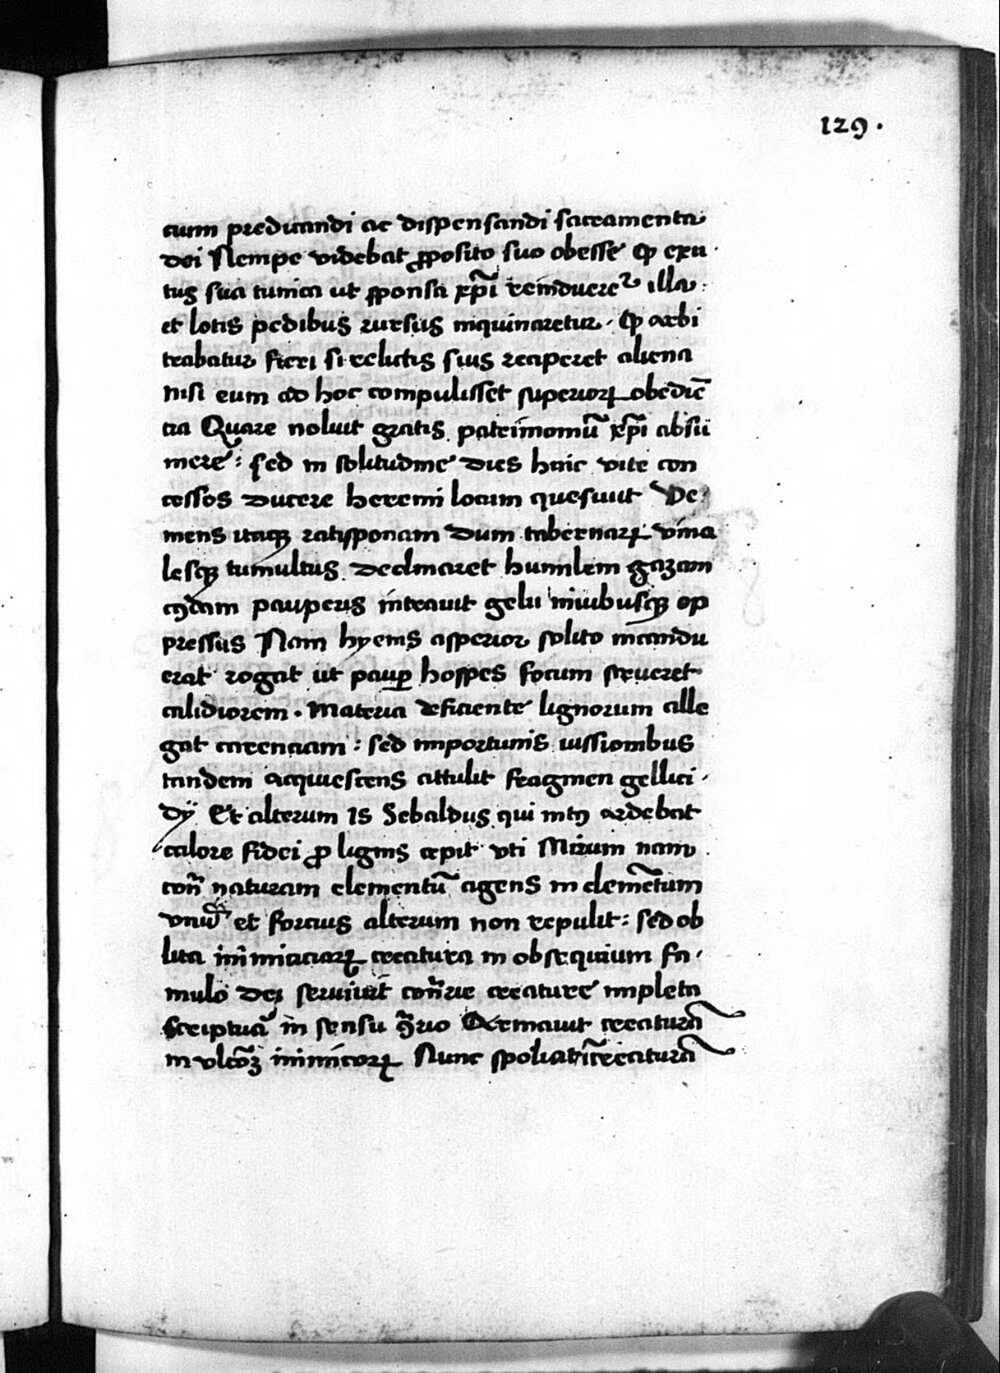 129.
cium predicandi ac dispensandi sacramenta
dei Nempe videbat ꝓposito suo obesse ꝙ exu
tus sua tunica ut sponsa xp̄i reindueretᷣ illa.
et lotis pedibus rursus inquinaretur. ꝙ arbi
trabatur fieri si relictis suis reciperet aliena
nisi eum ad hoc compulisset superioꝝ obediē
tia Quare noluit gratis patrimoniū xp̄i absu
mere: sed in solitudine dies huic vite con
cessos ducere heremi locum quesiuit Ve
mens itaqꝫ ratisponam dum tabernaꝝ vina
lesqꝫ tumultus declinaret humilem gazam
cuiꝰdam pauperis intrauit gelu niuibusqꝫ op
pressus Nam hyems asperior solito incandu
erat rogat ut pauꝑ hospes focum strueret
calidiorem. Materia deficiente lignorum alle
gat carenciam: sed importunis iussionibus
tandem acquiescens attulit fragmen gellici
dÿ Et alterum Is Sebaldus qui intꝰ ardebat
calore fidei ꝓ lignis cepit vti Mirum nam
cont̄ naturam elementū agens in elemētum
vnū et forcius alterum non repulit: sed ob
lita inimiciciaꝝ creatura in obsequium fa
mulo dei seruiuit cont̄rie creature impleta
Scriptura in sensu ꝯt̄rio Armauit creaturā
in vlcōꝫ inimicoꝝ Nunc spoliauit creaturā